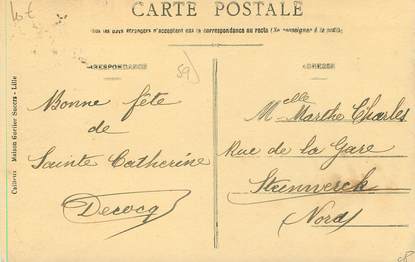 CARTE POSTALE
Tous les pays étrangers n'acceptent pas la correspondance au recto (Se renseigner à la poste).
CORRESPONDANCE
ADRESSE
59)
Bonne fête
de
Sainte Catherine
Decocq
Melle Marthe Charles
Rue de la Gare
Steenwerck
Nord
Maison Gortier Succrs - Lille